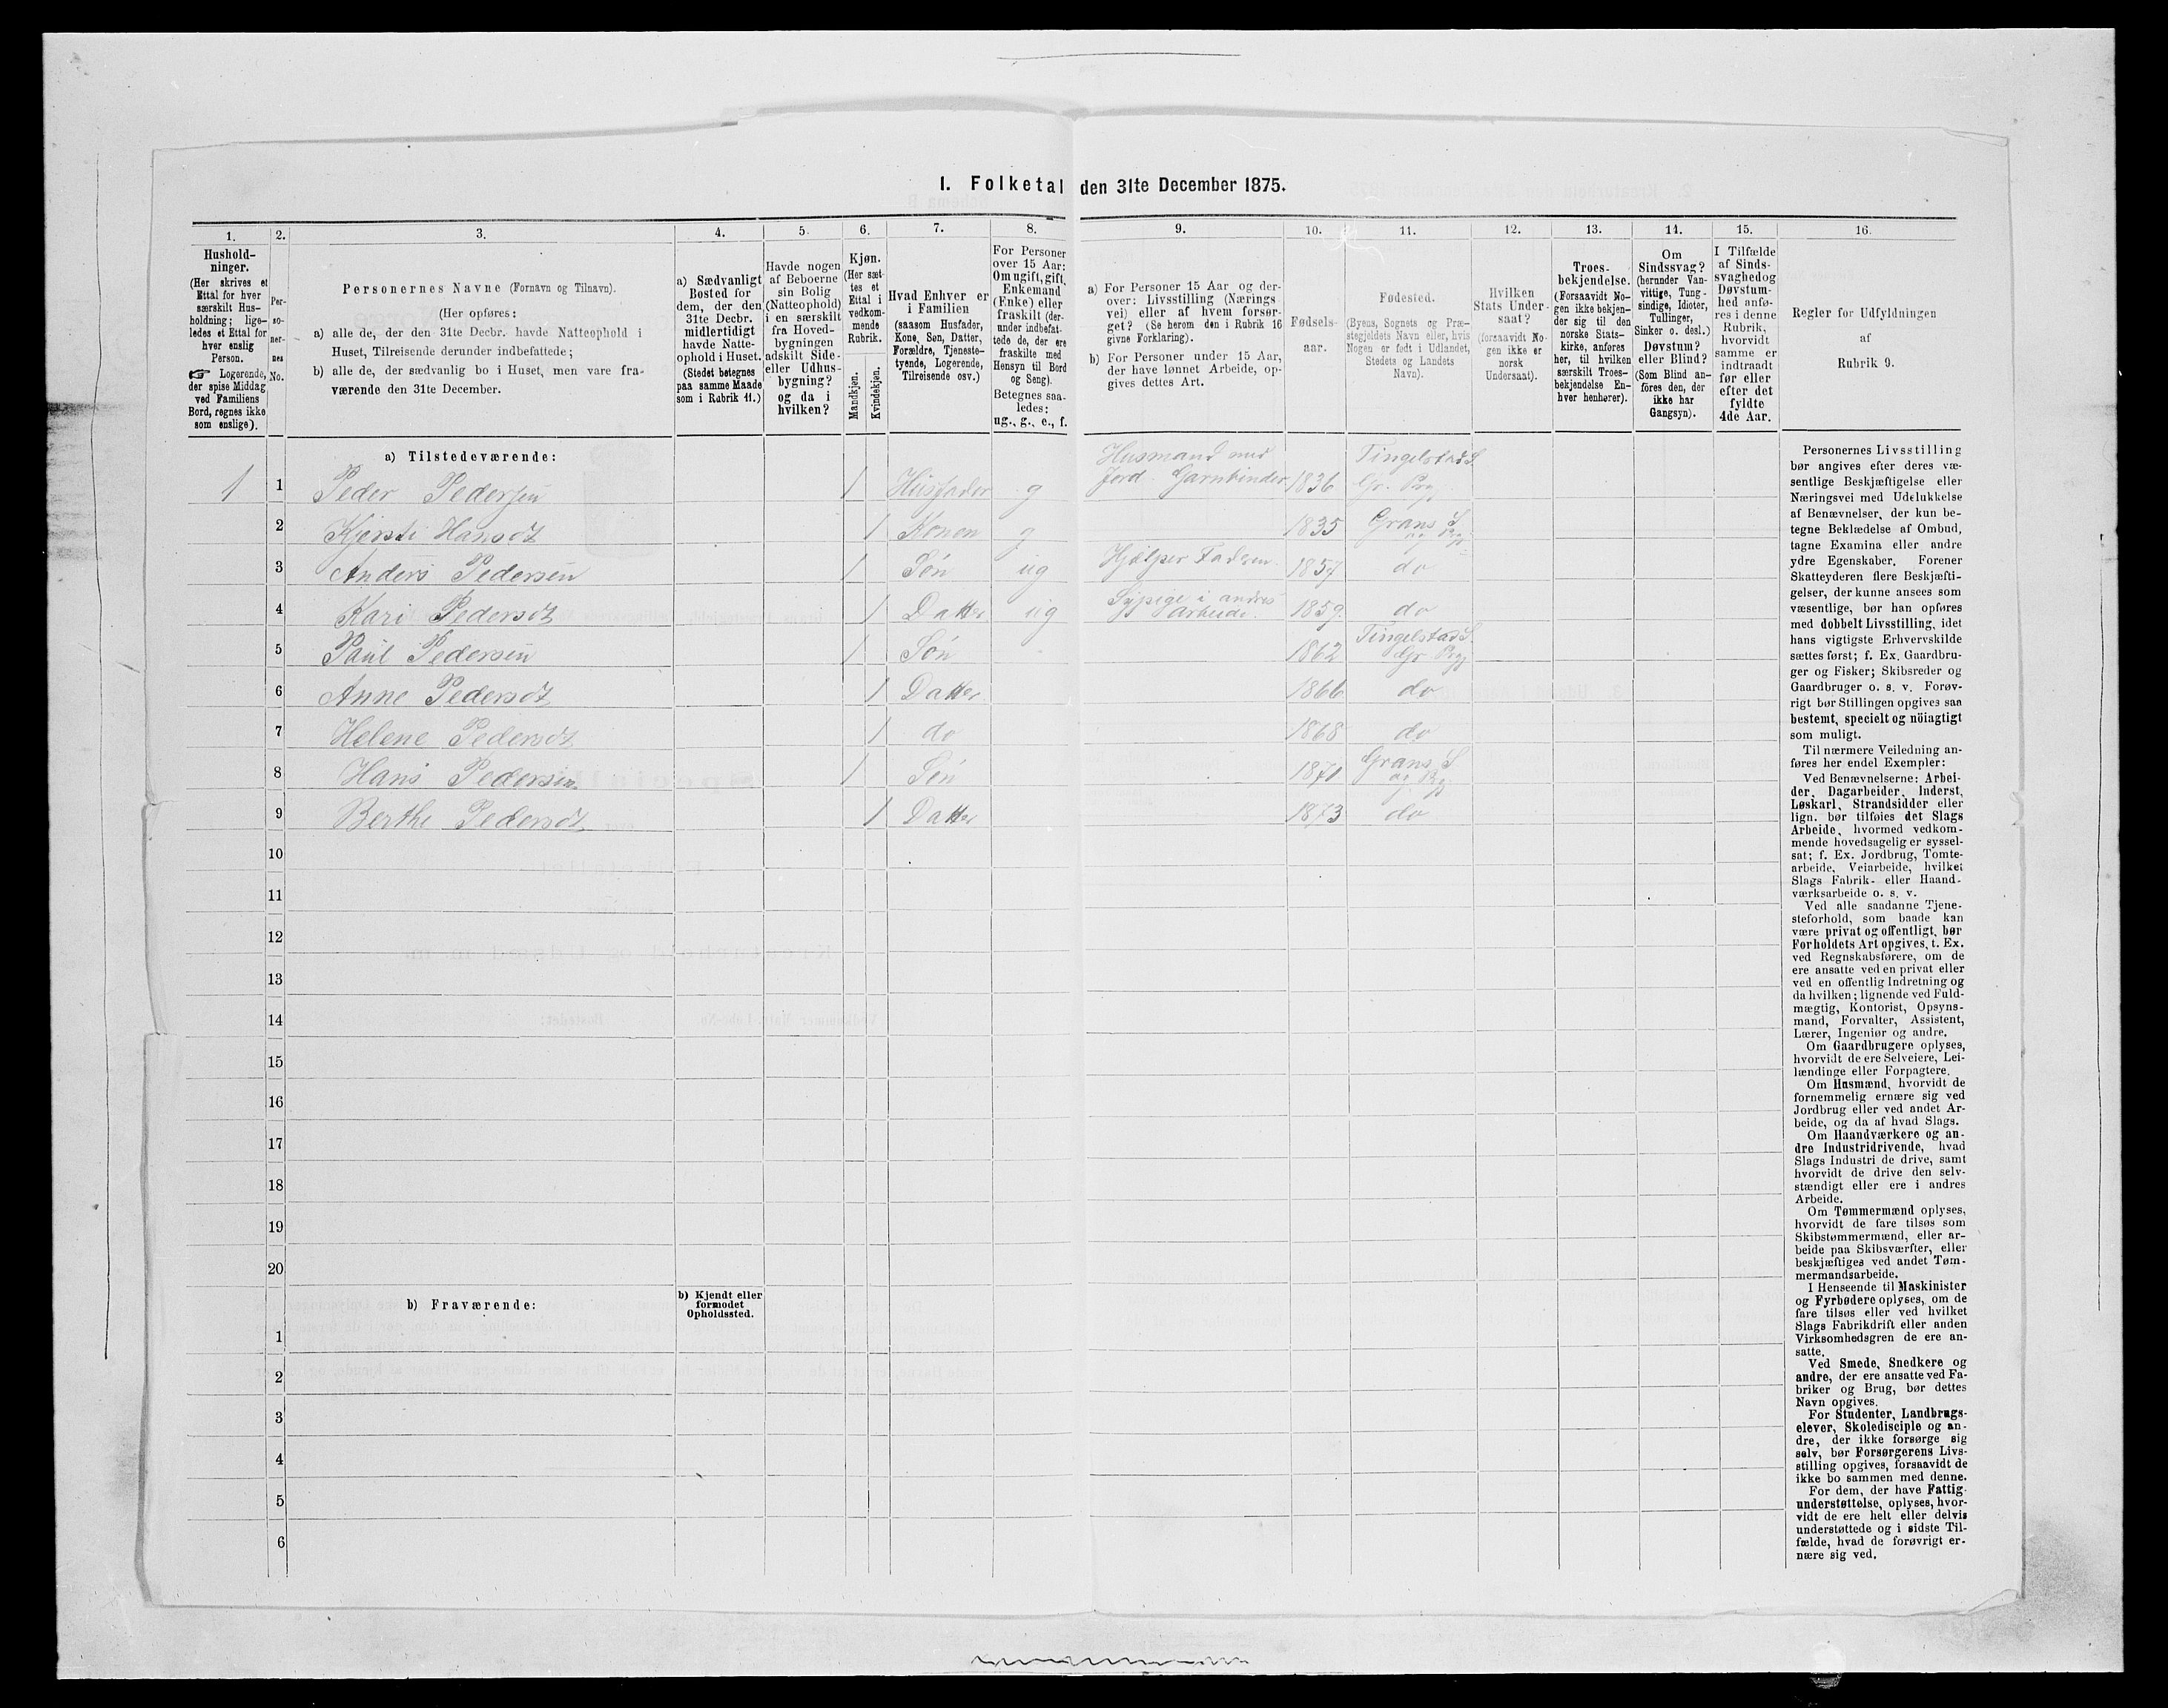 I. Folketal den 31te December 1875.
1.
2.
3.
4.
5.
6.
7.
8.
9.
10.
11.
12.
13.
14.
15.
16.
Hushold-
ninger.
(Her skrives et
Ettal for hver
særskilt Hus-
holdning; lige-
ledes et Ettal for
hver enslig
Person.
☞ Logerende,
der spise Middag
ved Familiens
Bord, regnes ikke
som enslige).
Per-
so-
ner-
nes
No.
Personernes Navne (Fornavn og Tilnavn).
(Her opføres:
a) alle de, der den 31te Decbr. havde Natteophold i
Huset, Tilreisende derunder indbefattede;
b) alle de, der sædvanlig bo i Huset, men vare fra-
værende den 31te December.
a) Sædvanligt
Bosted for
dem, der den
31te Decbr.
midlertidigt
havde Natte-
ophold i Huset.
(Stedet betegnes
paa samme Maade
som i Rubrik 11.)
Havde nogen
af Beboerne
sin Bolig
(Natteophold)
i en særskilt
fra Hoved-
bygningen
adskilt Side-
eller Udhus-
bygning?
og da i
hvilken?
Kjøn.
(Her sæt-
tes et
Ettal i
vedkom-
mende
Rubrik.
Mandkjøn.
Kvindekjøn.
Hvad Enhver er
i Familien
(saasom Husfader,
Kone, Søn, Datter,
Forældre, Tjeneste-
tyende, Logerende,
Tilreisende osv.)
For Personer
over 15 Aar:
Om ugift, gift,
Enkemand
(Enke) eller
fraskilt (der-
under indbefat-
tede de, der ere
fraskilte med
Hensyn til Bord
og Seng).
Betegnes saa-
ledes:
ug., g., e., f.
a) For Personer 15 Aar og der-
over: Livsstilling (Nærings-
vei) eller af hvem forsør-
get? (Se herom den i Rubrik 16
givne Forklaring).
b) For Personer under 15 Aar,
der have lønnet Arbeide, op-
gives dettes Art.
Fødsels-
aar.
Fødested.
(Byens, Sognets og Præ-
stegjeldets Navn eller, hvis
Nogen er født i Udlandet,
Stedets og Landets
Navn).
Hvilken
Stats Under-
saat?
(forsaavidt No-
gen ikke er
norsk
Undersaat).
Troes-
bekjendelse.
(Forsaavidt No-
gen ikke bekjen-
der sig til den
norske Stats-
kirke, anføres
her, til hvilken
særskilt Troes-
bekjendelse En-
hver henhører).
Om
Sindssvag?
(herunder Van-
vittige, Tung-
sindige, Idioter,
Tullinger,
Sinker o. desl.)
Døvstum?
eller Blind?
(Som Blind an-
föres den, der
ikke har
Gangsyn).
I Tilfælde
af Sinds-
svaghed og
Døvstum-
hed anfø-
res i denne
Rubrik,
hvorvidt
samme er
indtraadt
før eller
efter det
fyldte
4de Aar.
Regler for Udfyldningen
af
Rubrik 9.
a) Tilstedeværende:
1 1 Peder Pedersen 1 Husfader g Husmand med Jord. Garnbinder 1836 Tingelstad S. Gr. Prgj
2 Kjersti Hansdt 1 Konen g 1835 Grans S og Prgj
3 Anders Pedersen 1 Søn ug Hjelper Faderen 1857 do
4 Kari Pedersdt 1 Datter ug Sypige i andres Arbeide. 1859 do
5 Paul Pedersen 1 Søn 1862 Tingelstad S. Gr. Prgj
6 Anne Pedersdt 1 Datter 1866 do
7 Helene Pedersdt 1 do 1868 do
8 Hans Pedersen 1 Søn 1871 Grans S og Prgj
9 Berthe Pedersdt 1 Datter 1873 do
10
11
12
13
14
15
16
17
18
19
20
b) Fraværende:
b) Kjendt eller
formodet
Opholdssted.
1
2
3
4
5
6
Personernes Livsstilling
bør angives efter deres væ-
sentlige Beskjæftigelse eller
Næringsvei med Udelukkelse
af Benævnelser, der kun be-
tegne Beklædelse af Ombud,
tagne Examina eller andre
ydre Egenskaber. Forener
Skatteyderen flere Beskjæfti-
gelser, der kunne ansees som
væsentlige, bør han opføres
med dobbelt Livsstilling, idet
hans vigtigste Erhvervskilde
sættes først; f. Ex. Gaardbru-
ger og Fisker; Skibsreder og
Gaardbruger o. s. v. Forøv-
rigt bør Stillingen opgives saa
bestemt, specielt og nöiagtigt
som muligt.
Til nærmere Veiledning an-
føres her endel Exempler:
Ved Benævnelserne: Arbei-
der, Dagarbeider, Inderst,
Løskarl, Strandsidder eller
lign. bør tilføies det Slags
Arbeide, hvormed vedkom-
mende hovedsagelig er syssel-
sat; f. Ex. Jordbrug, Tomte-
arbeide, Veiarbeide, hvilket
Slags Fabrik- eller Haand-
værksarbeide o. s. v.
Ved alle saadanne Tjene-
steforhold, som baade kan
være privat og offentligt, bør
Forholdets Art opgives, t. Ex.
ved Regnskabsførere, om de
ere ansatte ved en privat eller
ved en offentlig Indretning og
da hvilken; lignende ved Fuld-
mægtig, Kontorist, Opsyns-
mand, Forvalter, Assistent,
Lærer, Ingeniør og andre.
Om Gaardbrugere oplyses,
hvorvidt de ere Selveiere, Lei-
lændinge eller Forpagtere.
Om Husmænd, hvorvidt de
fornemmelig ernære sig ved
Jordbrug eller ved andet Ar-
beide, og da af hvad Slags.
Om Haandværkere og an-
dre Industridrivende, hvad
Slags Industri de drive, samt
hvorvidt de drive den selv-
stændigt eller ere i andres
Arbeide.
Om Tømmermænd oplyses,
hvorvidt de fare tilsøs som
Skibstømmermænd, eller ar-
beide paa Skibsværfter, eller
beskjæftiges ved andet Tøm-
mermandsarbeide.
I Henseende til Maskinister
og Fyrbødere oplyses, om de
fare tilsøs eller ved hvilket
Slags Fabrikdrift eller anden
Virksomhedsgren de ere an-
satte.
Ved Smede, Snedkere og
andre, der ere ansatte ved Fa-
briker og Brug, bør dettes
Navn opgives.
For Studenter, Landbrugs-
elever, Skoledisciple og an-
dre, der ikke forsørge sig
selv, bør Forsørgerens Livs-
stilling opgives, forsaavidt de
ikke bo sammen med denne.
For dem, der have Fattig-
understøttelse, oplyses, hvor-
vidt de ere helt eller delvis
understøttede og i sidste Til-
fælde, hvad de forøvrigt er-
nære sig ved.